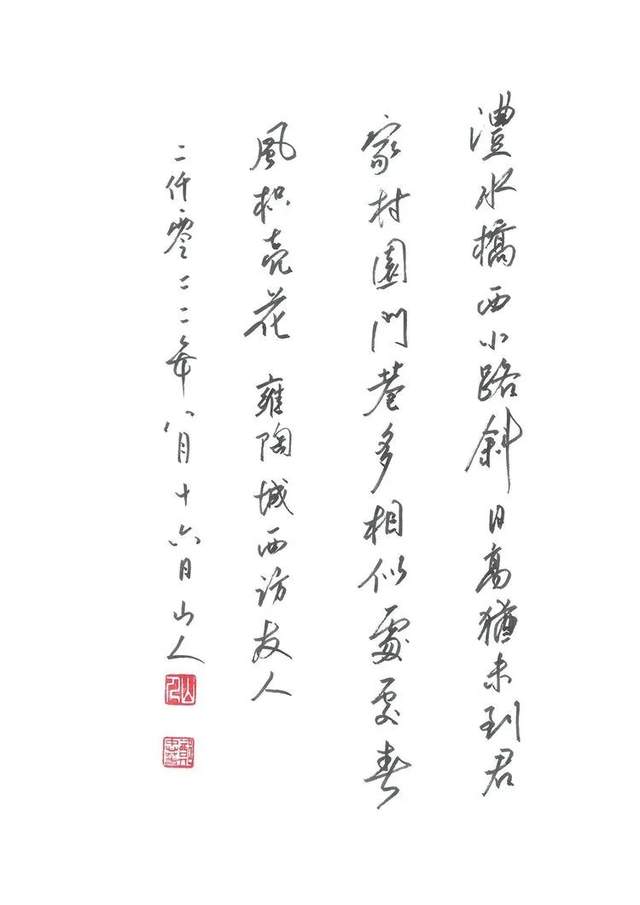 澧水橋西小路斜日高猶未到君
家村園門巷多相似處處春
風枳壳花 雍陶城西訪友人
二仟零二二年八月十六日山人
山人